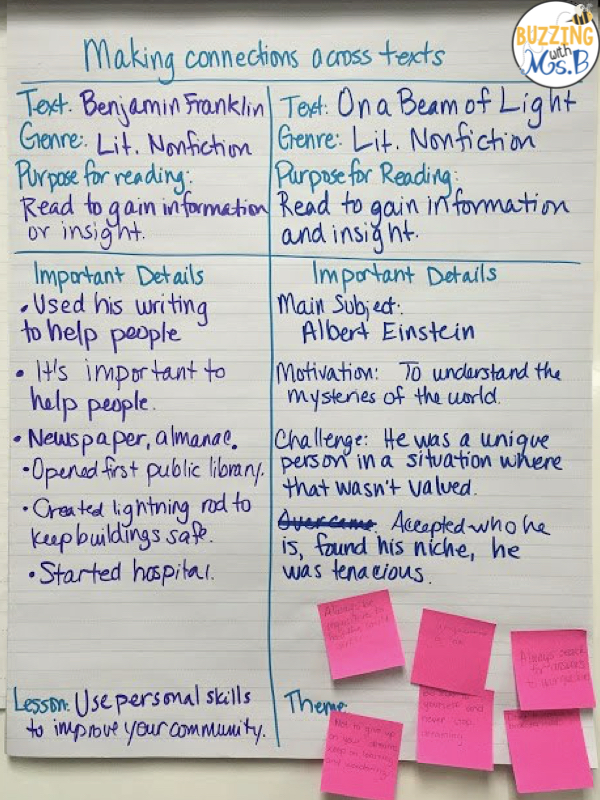 BUZZING
with
Ms.B
Making connections across texts
Text: Benjamin Franklin
Genre: Lit. Nonfiction
Purpose for reading:
Read to gain information
or insight.
Text: On a Beam of Light
Genre: Lit. Nonfiction
Purpose for Reading:
Read to gain information
and insight.
Important Details
• Used his writing
to help people
• It's important to
help people.
• Newspaper, almanac.
• Opened first public library.
• Created lightning rod to
keep buildings safe.
• Started hospital.
Lesson: Use personal skills
to improve your community.
Important Details
Main Subject:
Albert Einstein
Motivation: To understand the
mysteries of the world.
Challenge: He was a unique
person in a situation where
that wasn't valued.
Overcame: Accepted who he
is, found his niche, he
was tenacious.
Theme:
Always search
for answers
to
yourself and
never stop
Not to give up
on your dreams
keep on
and wondering